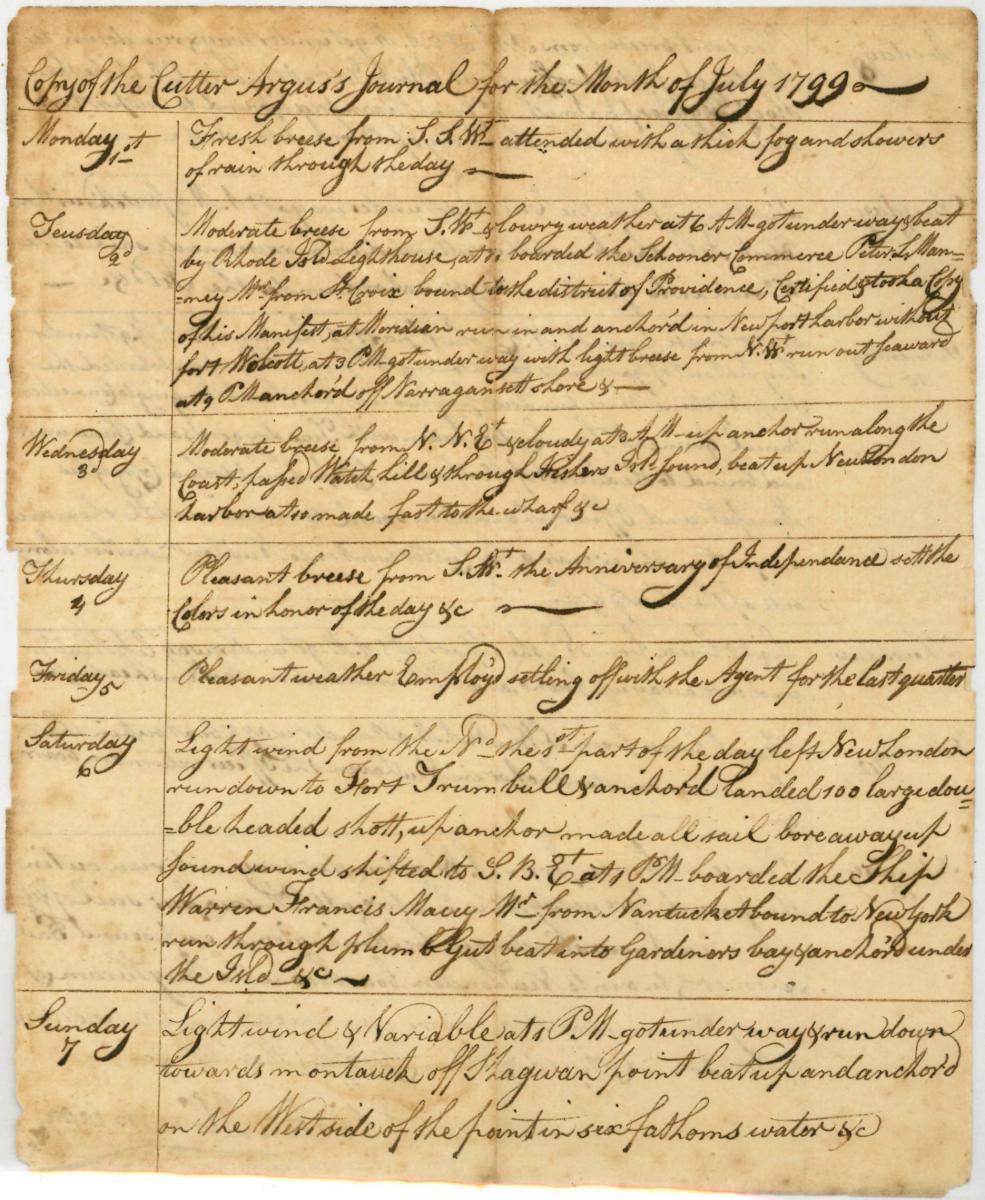 Copy of the Cutter Argus's Journal for the Month of July 1799
Monday 1st
Fresh breese from S. S. Wt attended with a thick fog and showers
of rain through the day
Teusday 2d
Moderate breese from S. Wt & lowry weather at 6 A M got under way & beat
by Rhode Isld Lighthouse, at 7 boarded the Schooner Commerce Peter L. Mam=
=ney Mr from St. Croix bound to the district of Providence, Certified & took a Copy
of his Manifest, at Meridian run in and anchor'd in Newport harbor without
fort Wolcott, at 3 P M got under way with light breese from N. Wt run out seaward
at 9 P M anchor'd off Narragansett shore &
Wednesday 3d
Moderate breese from N. N. Et & cloudy at 3 A M up anchor run along the
Coast, passed Watch hill & through Fishers Isld. Sound, beat up New London
harbor at 10 made fast to the wharf &c
Thursday 4
Pleasant breese from S. Wt. the Anniversary of Independance sett the
Colors in honor of the day &c
Friday 5
Pleasant weather Employ'd setling off with the Agent for the last quarter
Saturday 6
Light wind from the Nd the 1st part of the day left New London
run down to Fort Trumbull & anchor'd landed 100 large dou=
=ble headed shott, up anchor made all sail bore away up
Sound wind shifted to S. B. Et at 1 P M boarded the Ship
Warren Francis Macy Mr from Nantucket bound to New York
run through plumb Gut beat in to Gardiners bay & anchor'd under
the Isld &c
Sunday 7
Light wind & Variable at 1 P M got under way & run down
towards montauck off Shagwan point beat up and anchor'd
on the West side of the point in six fathoms water &c